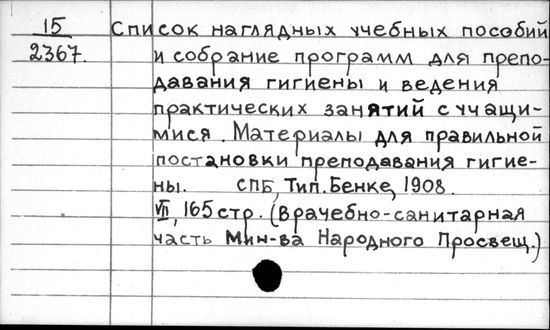 15 Список наглядных учебных пособий
2367. и собрание программ для препо-
давания гигиены и ведения
практических занятий с учащи-
мися. Материалы для правильной
постановки преподавания гигие-
ны. СПБ, Тип. Бенке, 1908.
VII, 165 стр. (Врачебно-санитарная
часть Мин-ва Народного Просвещ.)